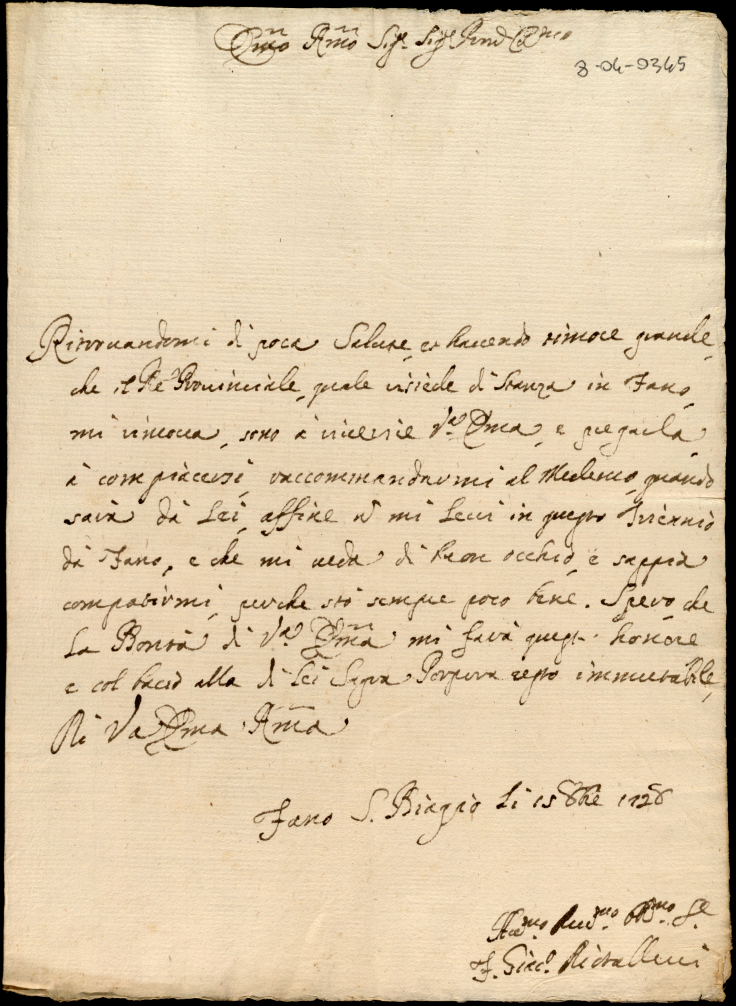 Emo Rmo Sigr Sigr Pron Colmo
8-04-0345
Ritrovandomi di poca Salute, et havendo timore grande,
che il Pre Provinciale, quale risiede di Stanza in Fano,
mi rimova, sono à riverire Va Ema, e pregarla
à compiacersi raccommandarmi al Medemo, quando
sarà dà Lei, affine n mi Levi in questo Triennio
dà Fano, e che mi veda di buon occhio, e sappia
compatirmi, perche stò sempre poco bene. Spero, che
La Bontà di Va Ema mi farà questo honore
e col bacio alla di Lei Sagra Porpora resto immutabile,
Di Va Ema Rma
Fano S. Biagio Li 15 8bre 1728
Humo Devmo Obmo Se
F. Giaco